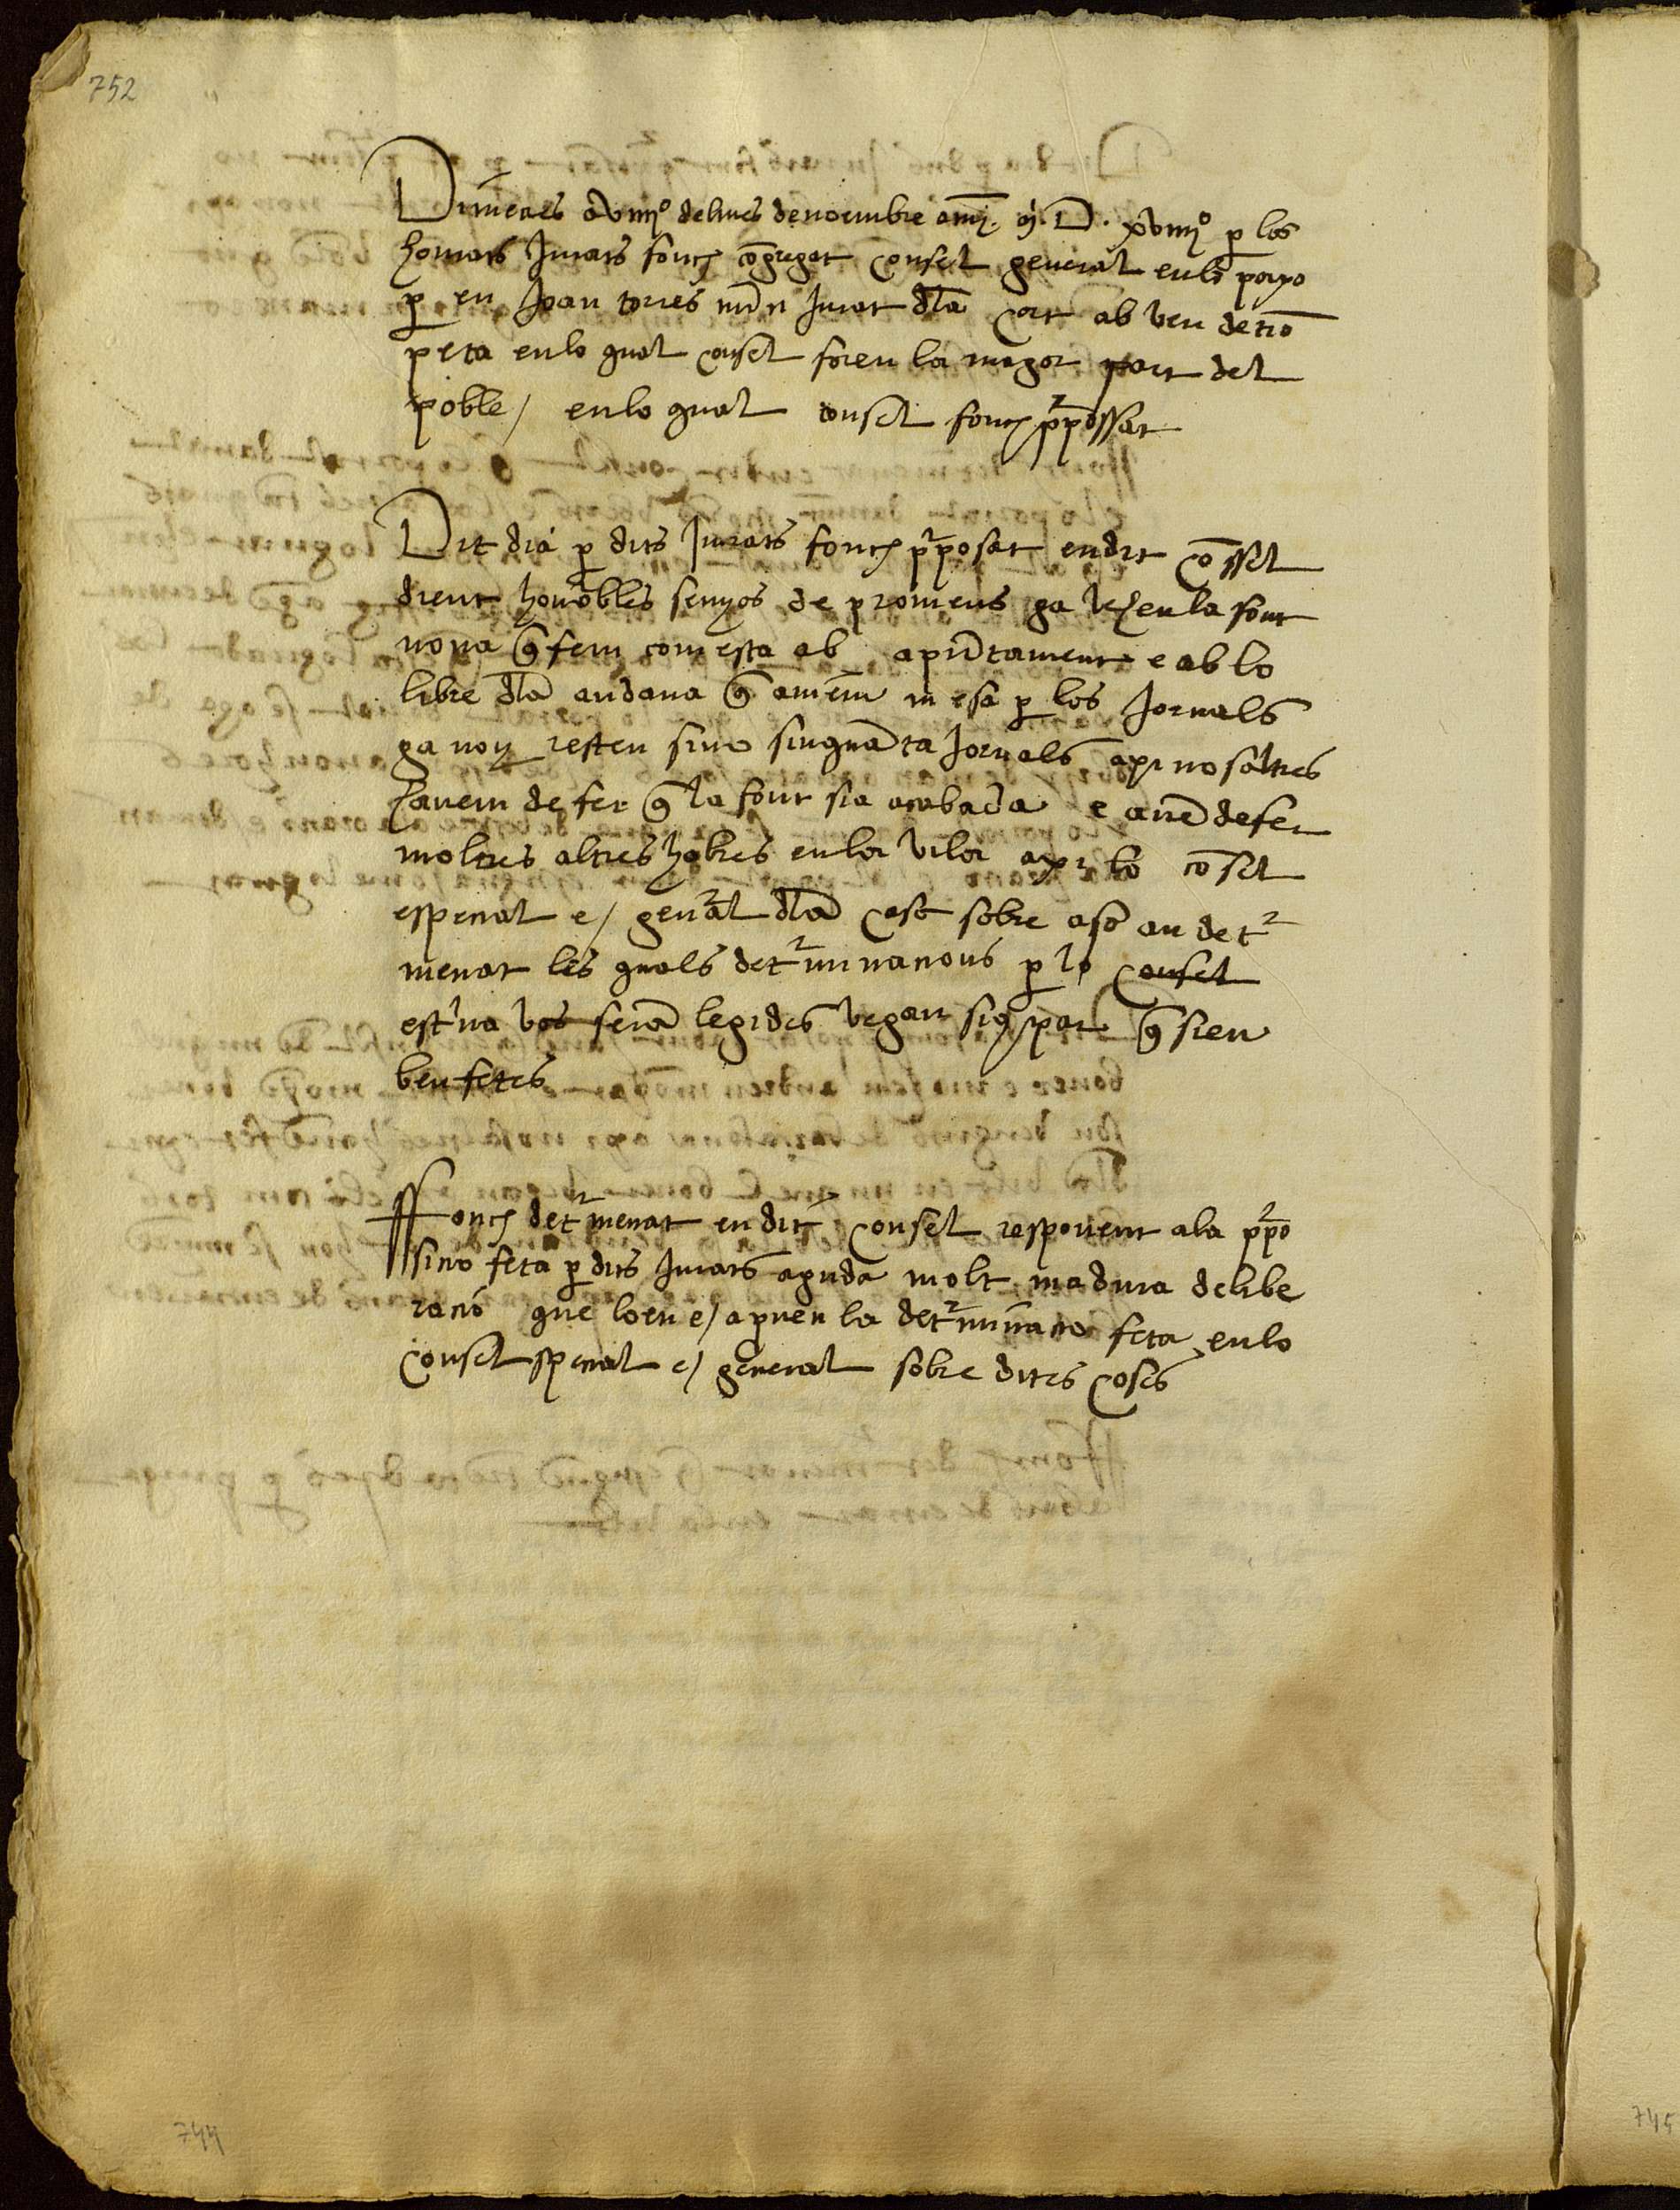 752
Dimecres a xviiijº del mes de noembre anni. M. D. xviiijº per los
honrats Jurats fonch cõgregat consel general en lo payo
per en Joan torres mĩn Jurat dla cort ab veu de trõ
peta en lo qual consel foren la magor part del
poble / en lo qual consel fonch ppossat
Dit dia per dits Jurats fonch pposat en dit cõssel
dient honobles senyos de promens ja veheu la font
nova q̃ fem com esta ab apũtament e ab lo
libre dla andana q̃ avem mesa per los Jornals
ga noy resten sino sinquãta Jornals axi nosaltres
havem de fer q̃ la font sia acabada e avẽ de fer
moltes altres hobres en la vila axi lo cõsel
especial e / genral dla cosa sobre aso an det
menat les quals detrminacions per lo consel
vos seran legides vegau si9 par q̃ sien
ben fetes
Ffonch detrmenat en dit consel responent a la ppo
sicio feta per dits Jurats aguda molt madura delibe
racio que loen e / aproen la detrminacio feta en lo
Consel special e / general sobre dites coses
744
745